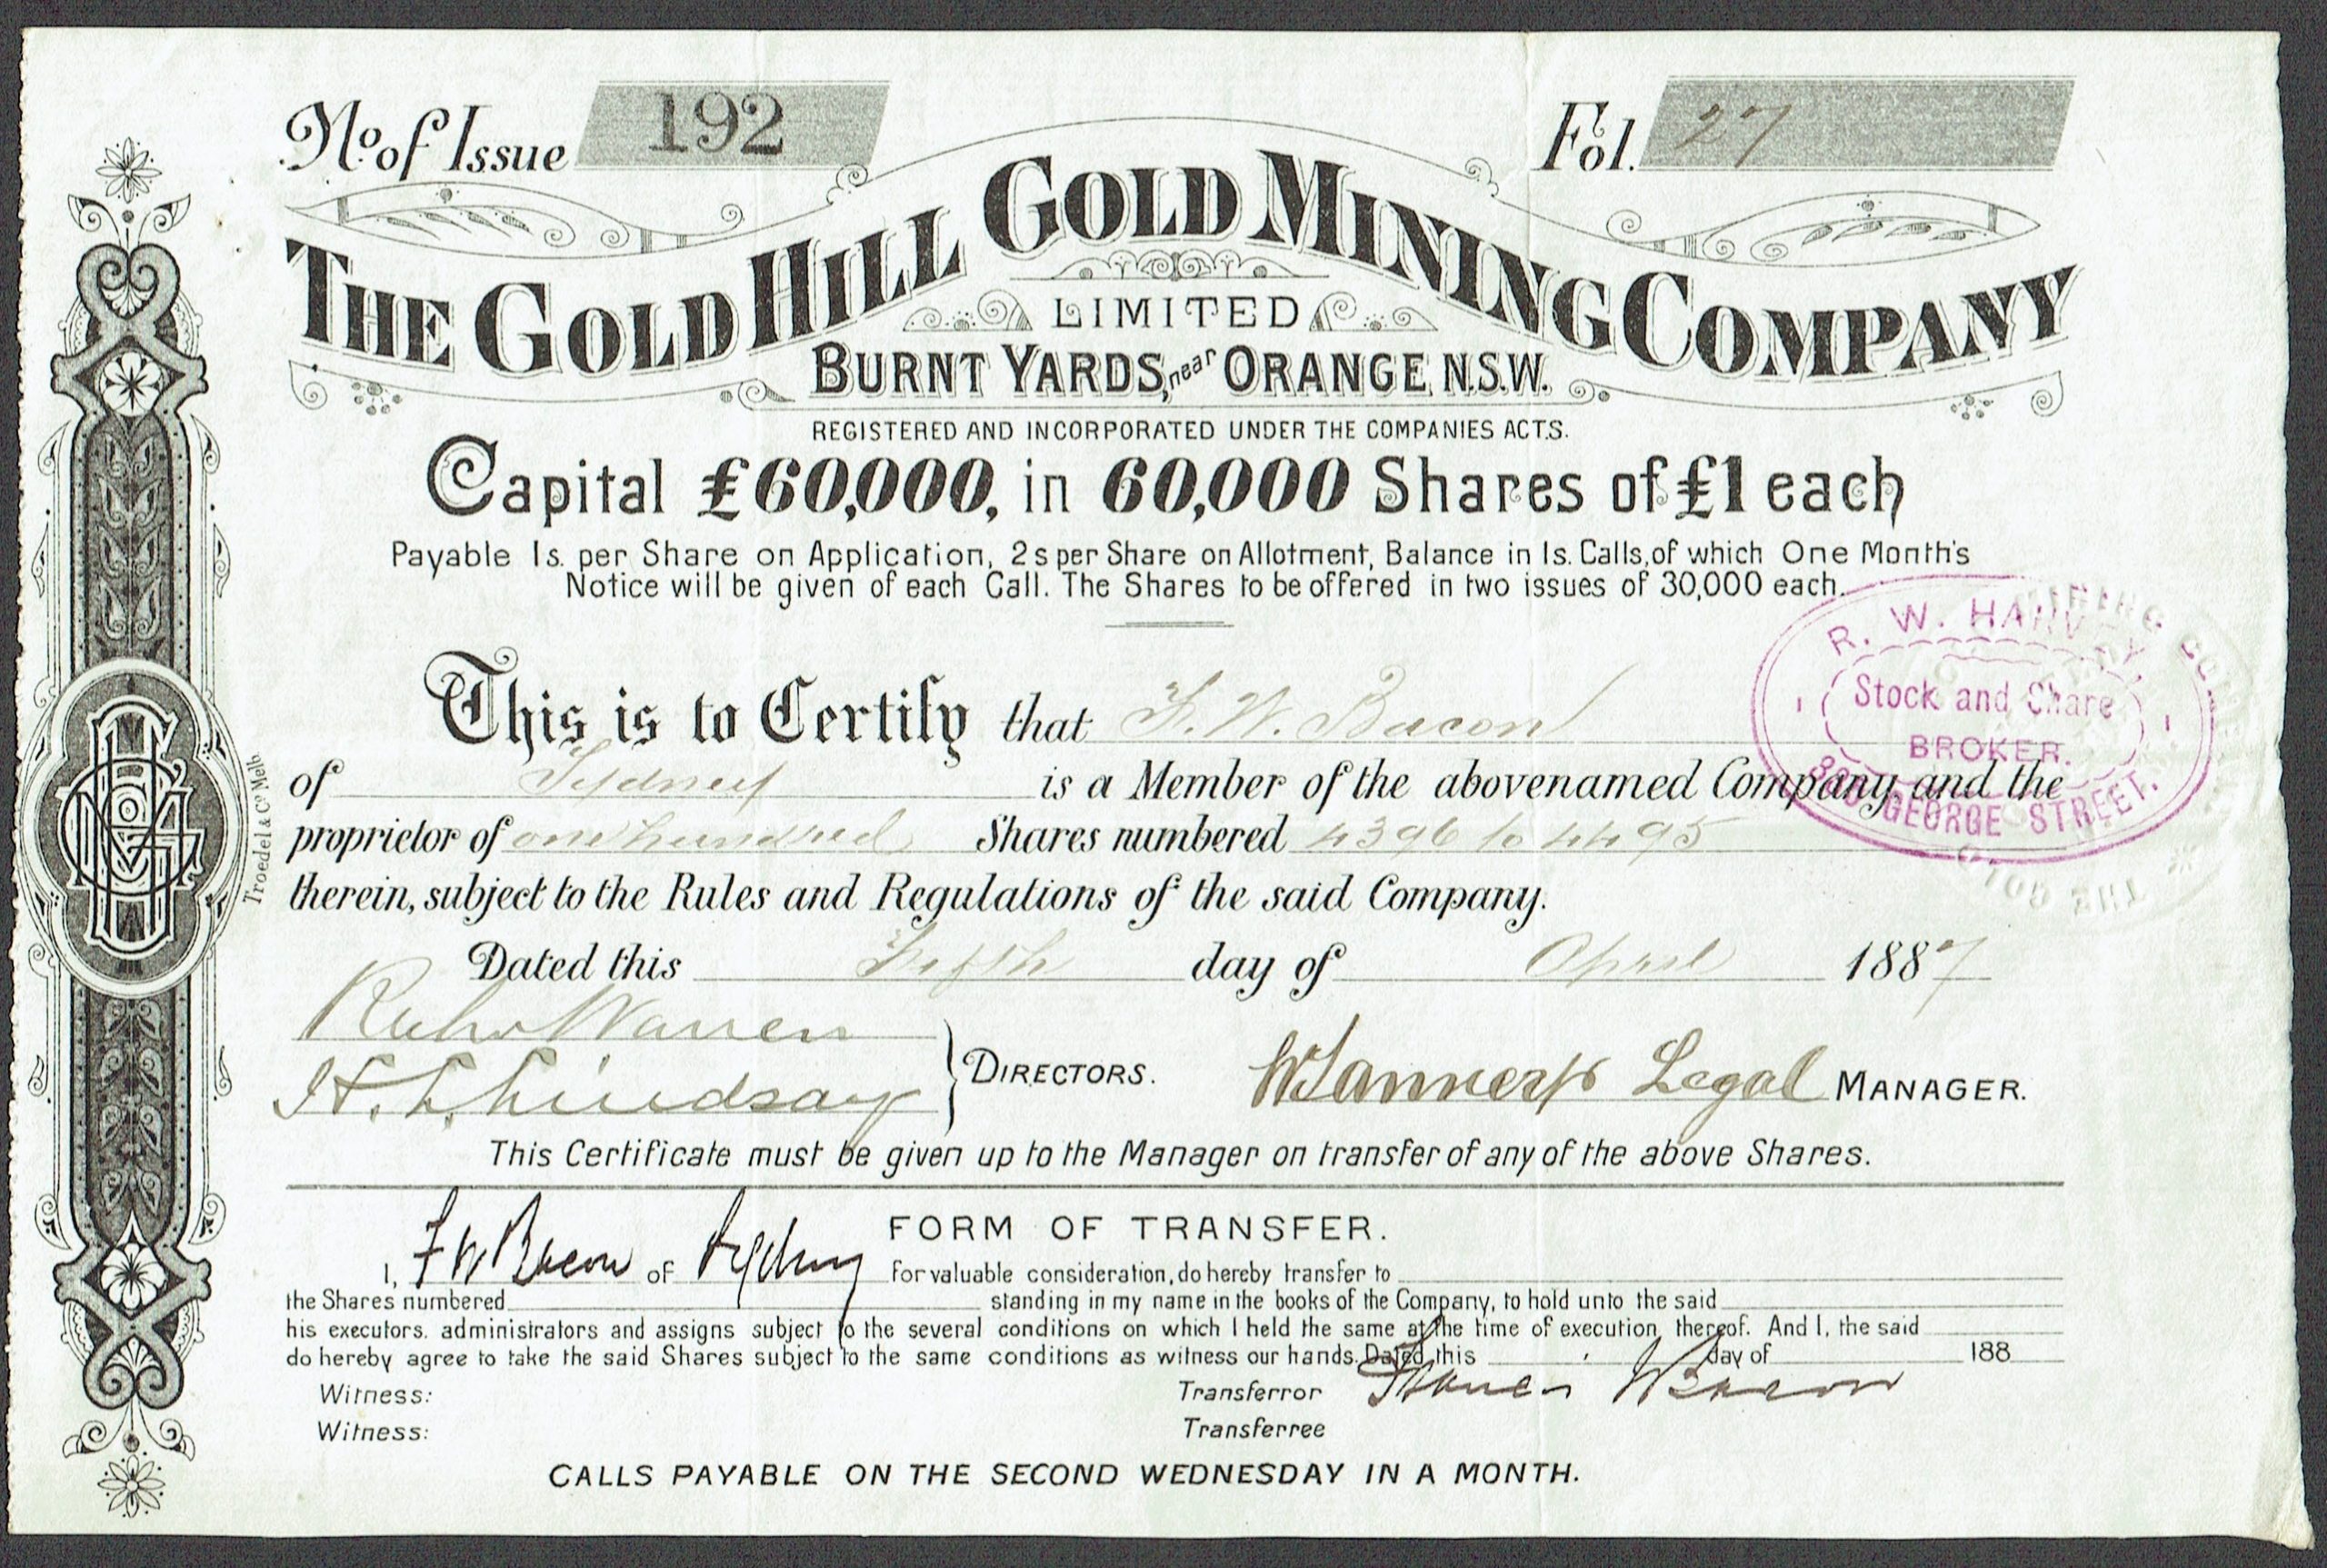 No. of Issue 192
Fol. 27
THE GOLD HILL GOLD MINING COMPANY
LIMITED
BURNT YARDS, near ORANGE N.S.W.
REGISTERED AND INCORPORATED UNDER THE COMPANIES ACTS.
Capital £60,000, in 60,000 Shares of £1 each
Payable 1s. per Share on Application, 2s per Share on Allotment, Balance in 1s. Calls, of which One Month's
Notice will be given of each Call. The Shares to be offered in two issues of 30,000 each.
R. W. HARVEY
Stock and Share
BROKER.
GEORGE STREET.
This is to Certify that F. W. Bacon
of Sydney is a Member of the abovenamed Company, and the
proprietor of one hundred Shares numbered 4396 to 4495
therein, subject to the Rules and Regulations of the said Company.
Dated this Fifth day of April 1887
Warren
H. L. Lindsay
DIRECTORS.
Legal MANAGER.
This Certificate must be given up to the Manager on transfer of any of the above Shares.
FORM OF TRANSFER.
I, F W Bacon of Sydney for valuable consideration, do hereby transfer to
the Shares numbered standing in my name in the books of the Company, to hold unto the said
his executors. administrators and assigns subject to the several conditions on which I held the same at the time of execution thereof. And I, the said
do hereby agree to take the said Shares subject to the same conditions as witness our hands. Dated this day of 188
Witness: Transferror Francis W Bacon
Witness: Transferree
CALLS PAYABLE ON THE SECOND WEDNESDAY IN A MONTH.
Troedel & Co Melb.